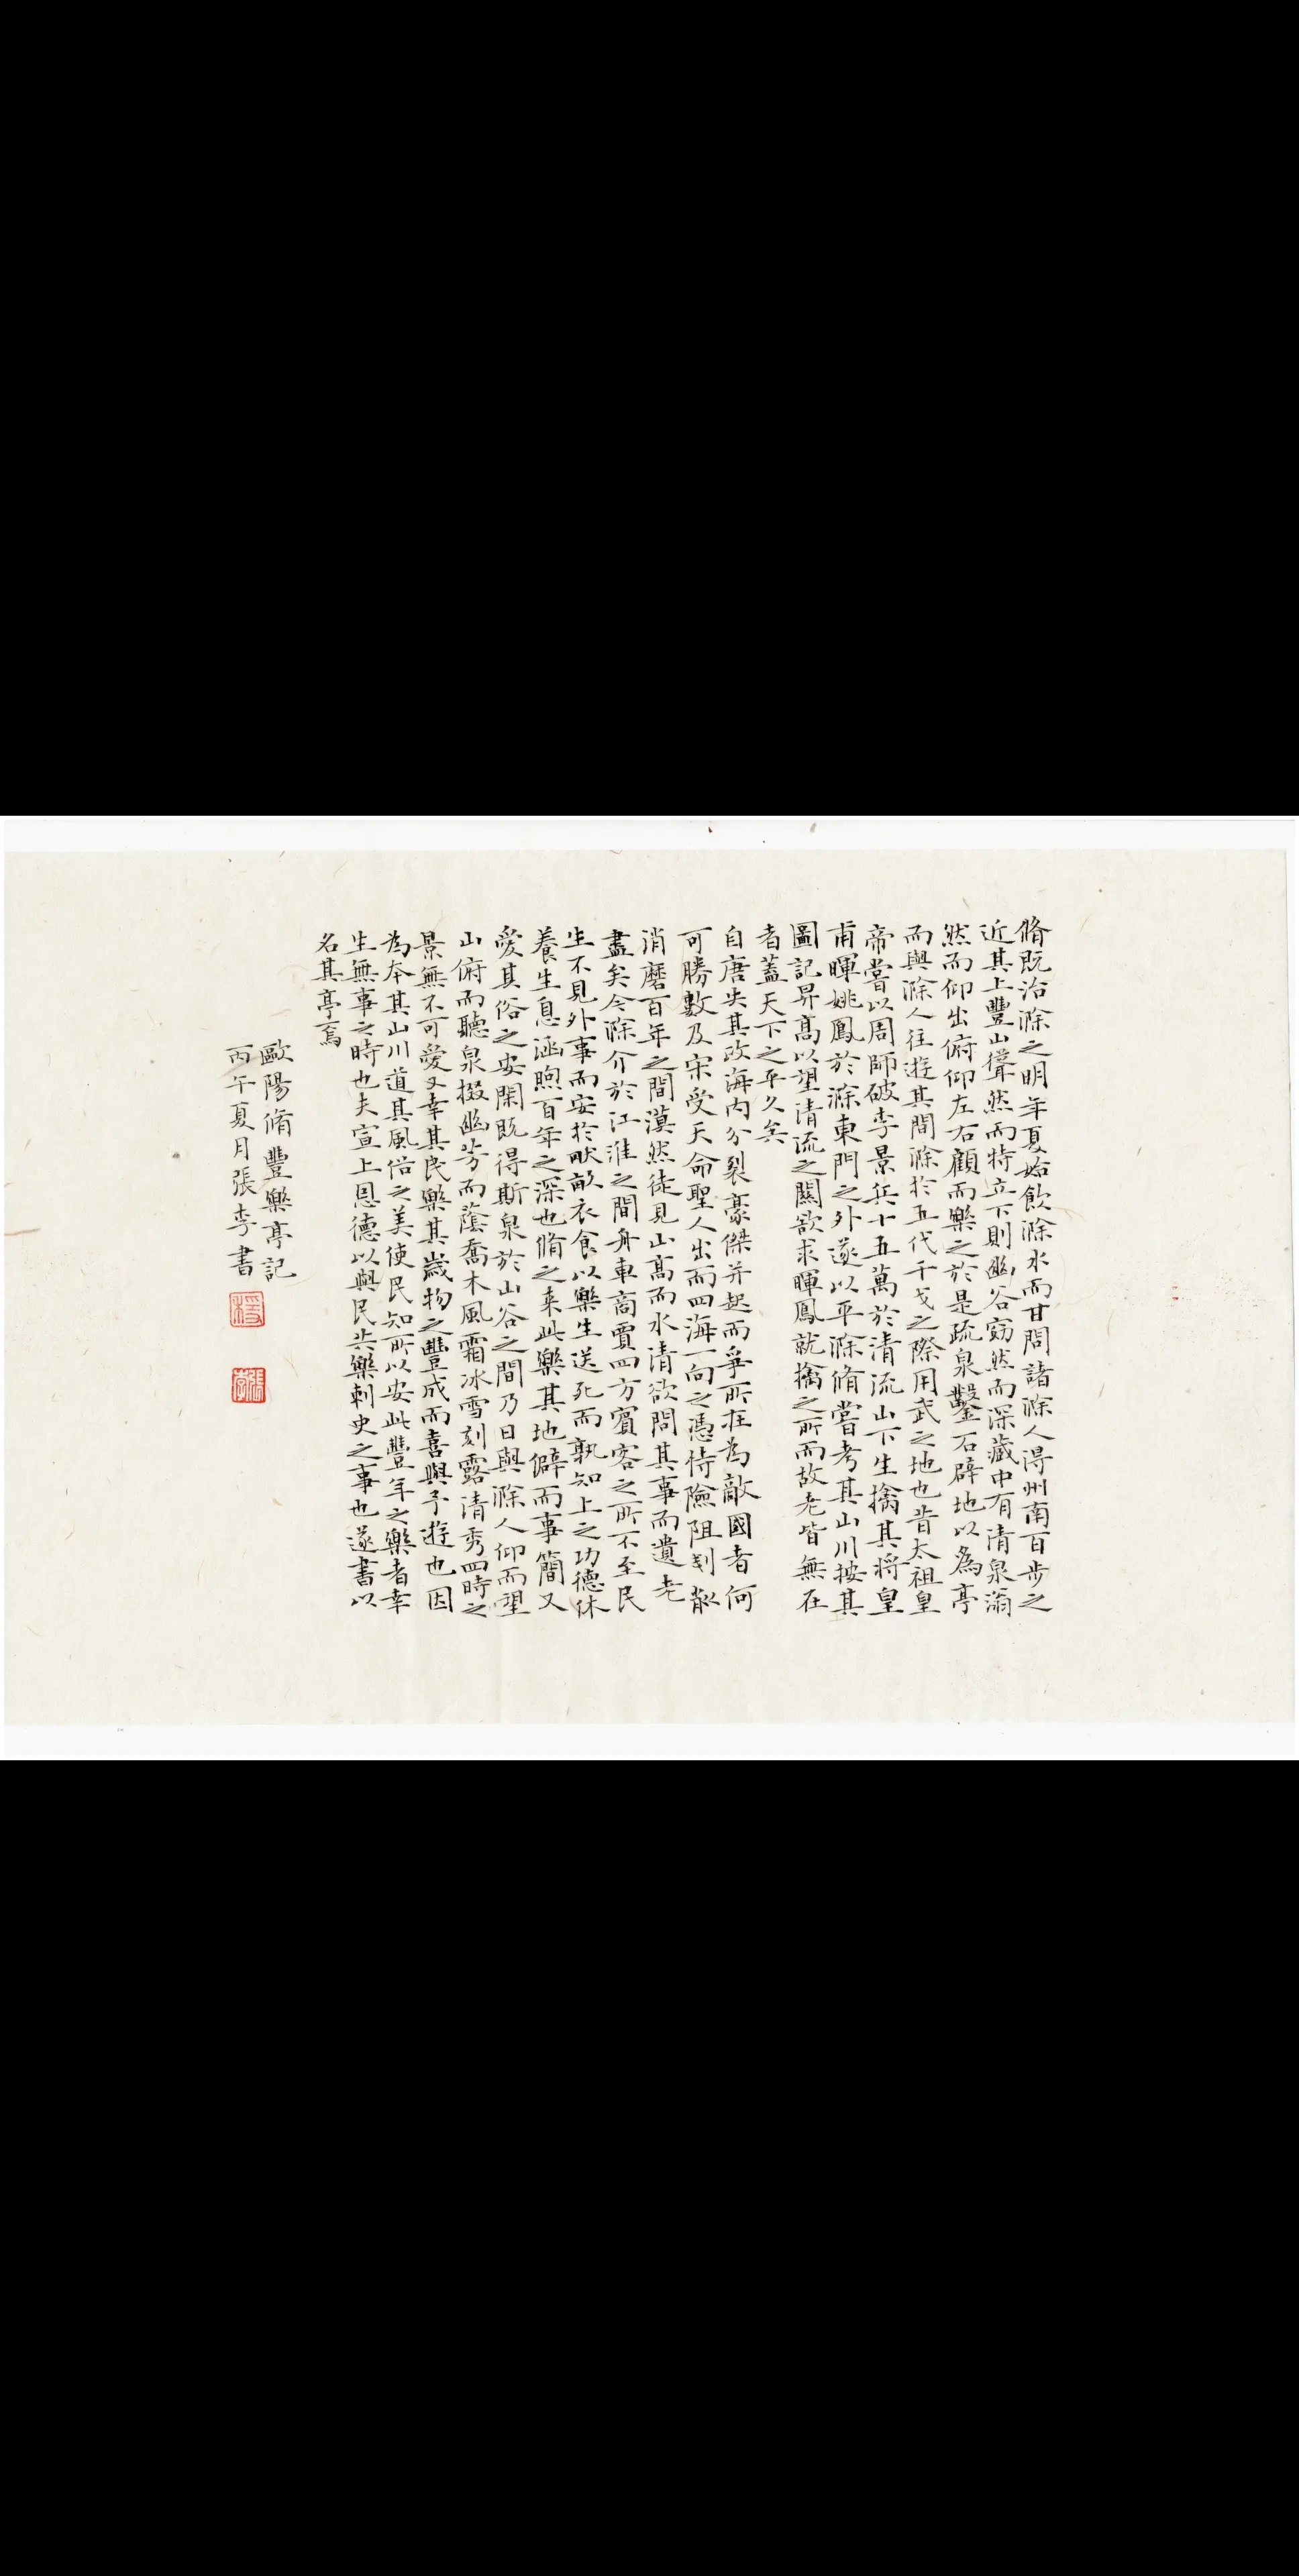 脩既治滁之明年夏始飲滁水而甘問諸滁人得州南百步之
近其上豐山聳然而特立下則幽谷窈然而深藏中有清泉滃
然而仰出俯仰左右顧而樂之於是疏泉鑿石辟地以為亭
而與滁人往遊其間滁於五代干戈之際用武之地也昔太祖皇
帝嘗以周師破李景兵十五萬於清流山下生擒其將皇
甫暉姚鳳於滁東門之外遂以平滁脩嘗考其山川按其
圖記昇高以望清流之關欲求暉鳳就擒之所而故老皆無在
者蓋天下之平久矣
自唐失其政海內分裂豪傑并起而爭所在為敵國者何
可勝數及宋受天命聖人出而四海一向之憑恃險阻剗
消磨百年之間漠然徒見山高而水清欲問其事而遺老
盡矣今滁介於江淮之間舟車商賈四方賓客之所不至民
生不見外事而安於畎畝衣食以樂生送死而孰知上之功德休
養生息涵煦百年之深也脩之來此樂其地僻而事簡又
愛其俗之安閑既得斯泉於山谷之間乃日與滁人仰而望
山俯而聽泉掇幽芳而蔭喬木風霜冰雪刻露清秀四時之
景無不可愛又幸其民樂其歲物之豐成而喜與予遊也因
為本其山川道其風俗之美使民知所以安此豐年之樂者幸
生無事之時也夫宣上恩德以與民共樂刺史之事也遂書以
名其亭焉
歐陽脩豐樂亭記
丙午夏月張李書